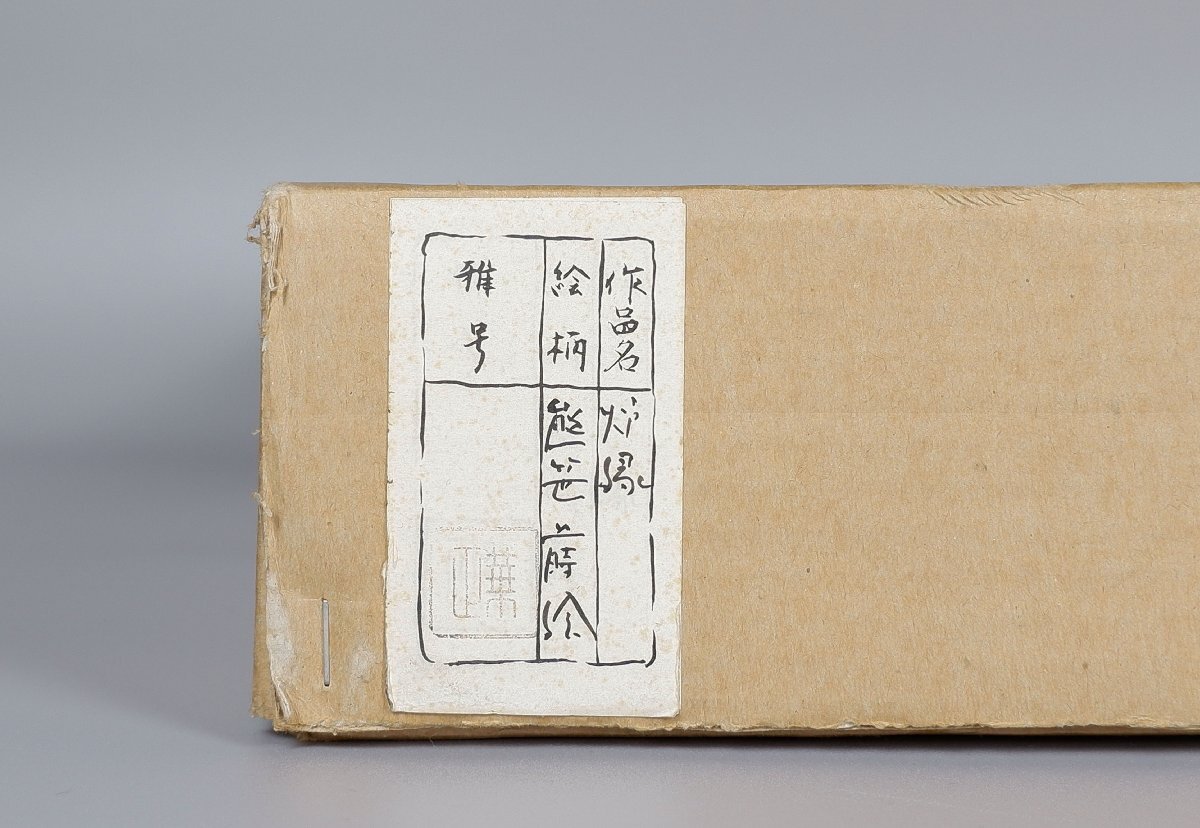 作品名 炉縁
絵柄 熊笹蒔絵
雅号